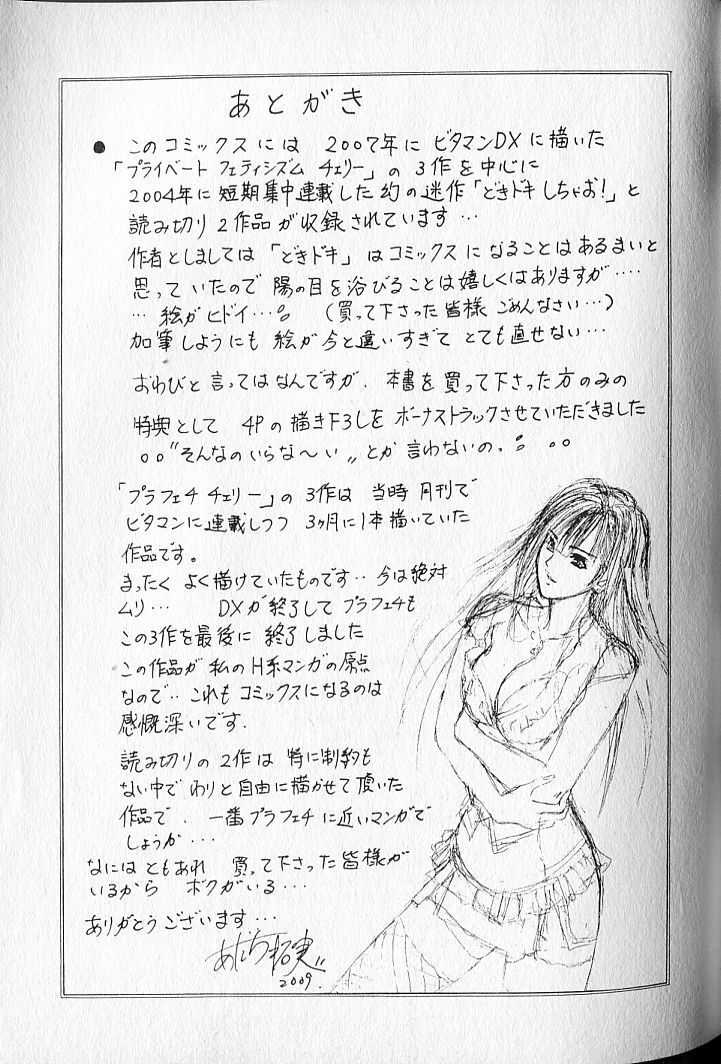 あとがき
● このコミックスには 2007年に ビタマンDXに描いた
「プライベート フェティシズム チェリー」の 3作を中心に
2004年に短期集中連載した約の迷作「どきドキしちゃお!」と
読み切り 2作品が収録されています…
作者としましては「どきドキ」はコミックスになることはあるまいと
思っていたので 陽の目を浴びることは嬉しくはありますが‥‥
… 絵がヒドイ…。 (買って下さった皆様 ごめんなさい…)
加筆しようにも 絵が今と違いすぎて とても直せない…
おわびと言ってはなんですが、本書を買って下さった方のみの
特典として 4Pの描き下3しを ボーナストラックさせていただきました
。。"そんなのいらな〜い〟とか 言わないの。 。。
「プラフェチ チェリー」の 3作は 当時 月刊で
ビタマンに連載しつつ 3ヶ月に1本描いていた
作品です。
まったく よく描けていたものです‥今は絶対
ムリ… DXが終了して プラフェチも
この3作を最後に 終了しました
この作品が 私のH系マンガの原点
なので‥ これも コミックスになるのは
感慨深いです.
読み切りの 2作は 特に制約も
ない中で わりと自由に描かせて頂いた
作品で、 一番プラフェチに近いマンガで
しょうか…
なにはともあれ 買って下さった皆様が
いるから ボクがいる…
ありがとうございます…
2009.